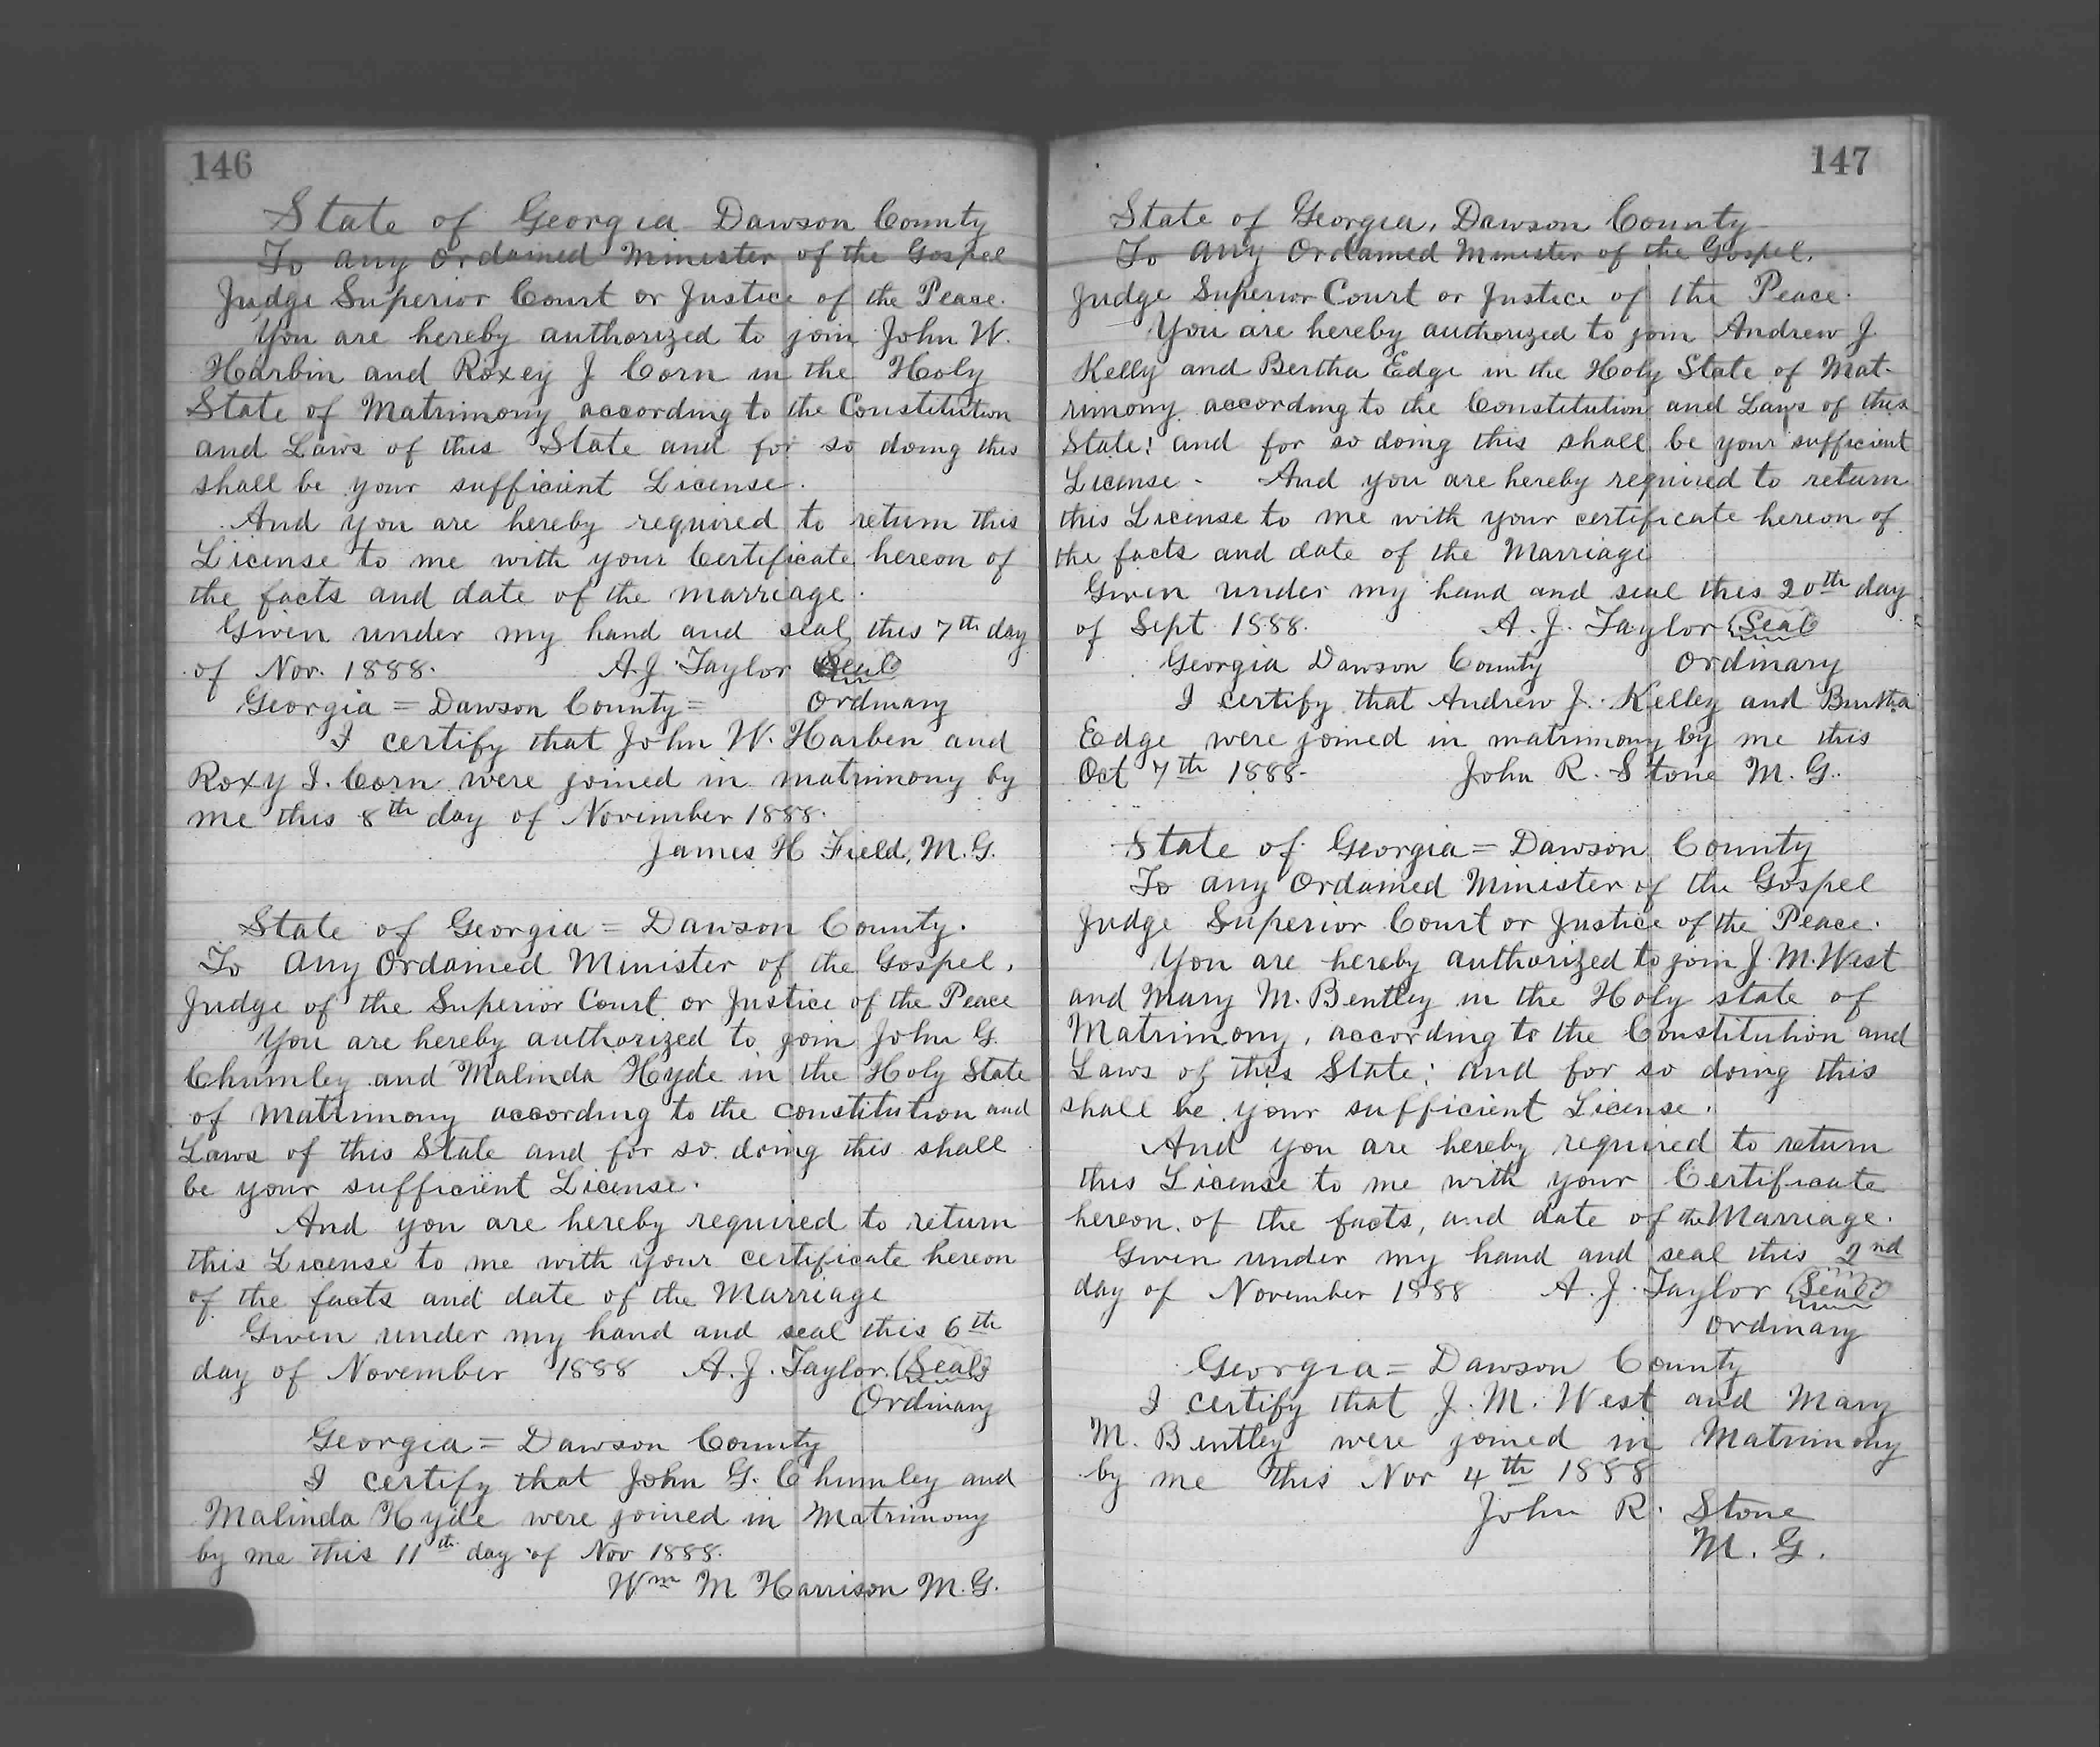 146
State of Georgia Dawson County
To any Ordained Minister of the Gospel
Judge Superior Court or Justice of the Peace.
You are hereby authorized to join John W.
Harbin and Roxey J Corn in the Holy
State of Matrimony according to the Constitution
and Laws of this State and for so doing this
shall be your sufficient License.
And you are hereby required to return this
License to me with your Certificate hereon of
the facts and date of the marriage.
Given under my hand and seal this 7th day
of Nov. 1888. A.J. Taylor Seal
Georgia = Dawson County = Ordinary
I certify that John W. Harben and
Roxy J. Corn were joined in matrimony by
me this 8th day of November 1888.
James H Field, M.G.
State of Georgia = Dawson County.
To any Ordained Minister of the Gospel,
Judge of the Superior Court or Justice of the Peace
You are hereby authorized to join John G.
Chumley and Malinda Hyde in the Holy State
of Matrimony according to the constitution and
Laws of this State and for so doing this shall
be your sufficient License.
And you are hereby required to return
this License to me with your certificate hereon
of the facts and date of the Marriage
Given under my hand and seal this 6th
day of November 1888 A.J. Taylor (Seal)
Ordinary
Georgia = Dawson County
I certify that John G. Chumley and
Malinda Hyde were joined in Matrimony
by me this 11th day of Nov 1888.
Wm M Harrison M.G.
147
State of Georgia, Dawson County
To any Ordained Minister of the Gospel.
Judge Superior Court or Justice of the Peace.
You are hereby authorized to join Andrew J.
Kelly and Bertha Edge in the Holy State of Mat-
rimony according to the Constitution and Laws of this
State; and for so doing this shall be your sufficient
License - And you are hereby required to return
this License to me with your certificate hereon of
the facts and date of the Marriage
Given under my hand and seal this 20th day
of Sept. 1888. A.J. Taylor (Seal)
Georgia Dawson County Ordinary
I certify that Andrew J. Kelley and Burtha
Edge were joined in matrimony by me this
Oct 7th 1888- John R. Stone M.G.
State of Georgia = Dawson County
To any Ordained Minister of the Gospel
Judge Superior Court or Justice of the Peace.
You are hereby authorized to join J.M. West
and Mary M. Bentley in the Holy state of
Matrimony, according to the Constitution and
Laws of this State; and for so doing this
shall be your sufficient License.
And you are hereby required to return
this License to me with your Certificate
hereon of the facts, and date of the Marriage.
Given under my hand and seal this 2nd
day of November 1888 A.J. Taylor (Seal)
Ordinary
Georgia = Dawson County
I certify that J.M. West and Mary
M. Bentley were joined in Matrimony
by me this Nov 4th 1888
John R. Stone
M.G.